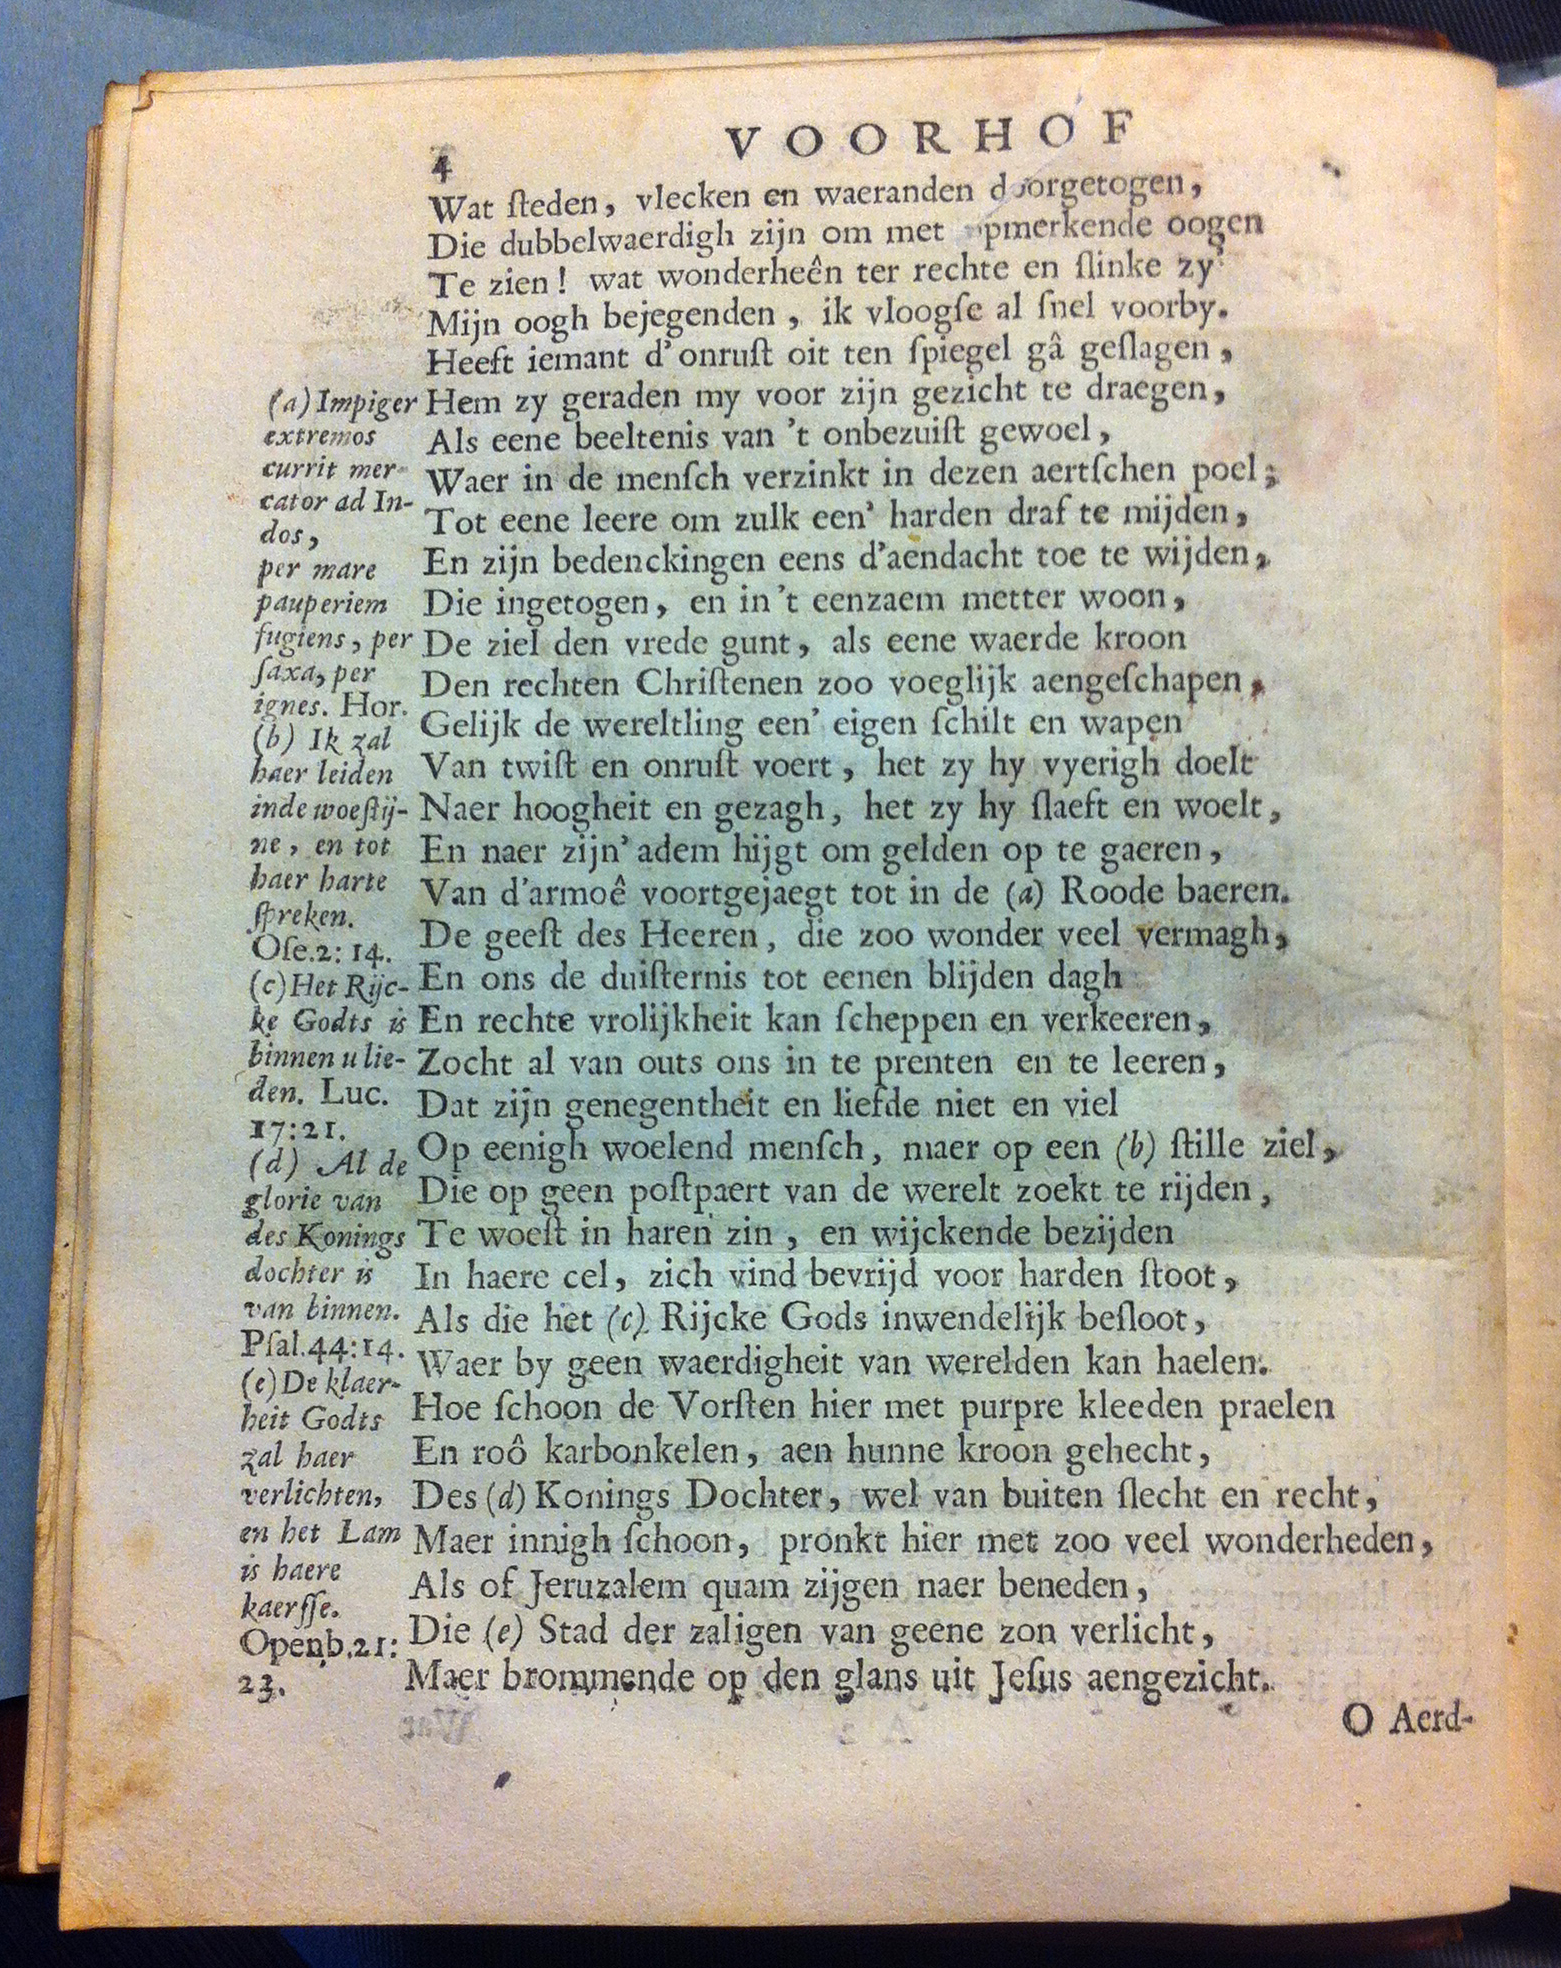 4 VOORHOF
Wat ſteden, vlecken en waeranden doorgetogen,
Die dubbelwaerdigh zijn om met opmerkende oogen
Te zien! wat wonderheên ter rechte en ſlinke zy'
Mijn oogh bejegenden, ik vloogſe al ſnel voorby.
Heeft iemant d'onruſt oit ten ſpiegel gâ geſlagen,
Hem zy geraden my voor zijn gezicht te draegen,
Als eene beeltenis van 't onbezuiſt gewoel,
Waer in de menſch verzinkt in dezen aertſchen poel;
Tot eene leere om zulk een' harden draf te mijden,
En zijn bedenckingen eens d'aendacht toe te wijden,
Die ingetogen, en in 't eenzaem metter woon,
De ziel den vrede gunt, als eene waerde kroon
Den rechten Chriſtenen zoo voeglijk aengeſchapen,
Gelijk de wereltling een' eigen ſchilt en wapen
Van twiſt en onruſt voert, het zy hy vyerigh doelt
Naer hoogheit en gezagh, het zy hy ſlaeft en woelt,
En naer zijn' adem hijgt om gelden op te gaeren,
Van d'armoê voortgejaegt tot in de (a) Roode baeren.
De geeſt des Heeren, die zoo wonder veel vermagh,
En ons de duiſternis tot eenen blijden dagh
En rechte vrolijkheit kan ſcheppen en verkeeren,
Zocht al van outs ons in te prenten en te leeren,
Dat zijn genegentheit en liefde niet en viel
Op eenigh woelend menſch, maer op een (b) ſtille ziel,
Die op geen poſtpaert van de werelt zoekt te rijden,
Te woeſt in haren zin, en wijckende bezijden
In haere cel, zich vind bevrijd voor harden ſtoot,
Als die het (c) Rijcke Gods inwendelijk beſloot,
Waer by geen waerdigheit van werelden kan haelen.
Hoe ſchoon de Vorſten hier met purpre kleeden praelen
En roô karbonkelen, aen hunne kroon gehecht,
Des (d) Konings Dochter, wel van buiten ſlecht en recht,
Maer innigh ſchoon, pronkt hier met zoo veel wonderheden,
Als of Jeruzalem quam zijgen naer beneden,
Die (e) Stad der zaligen van geene zon verlicht,
Maer brommende op den glans uit Jeſus aengezicht.
O Aerd-
(a) Impiger
extremos
currit mer-
cator ad In-
dos,
per mare
pauperiem
fugiens, per
ſaxa, per
ignes. Hor.
(b) Ik zal
haer leiden
inde woeſtij-
ne, en tot
haer harte
ſpreken.
Oſe.2: 14.
(c) Het Rijc-
ke Godts is
binnen u lie-
den. Luc.
17:21.
(d) Al de
glorie van
des Konings
dochter is
van binnen.
Pſal.44:14.
(e) De klaer-
heit Godts
zal haer
verlichten,
en het Lam
is haere
kaerſſe.
Openb.21:
23.